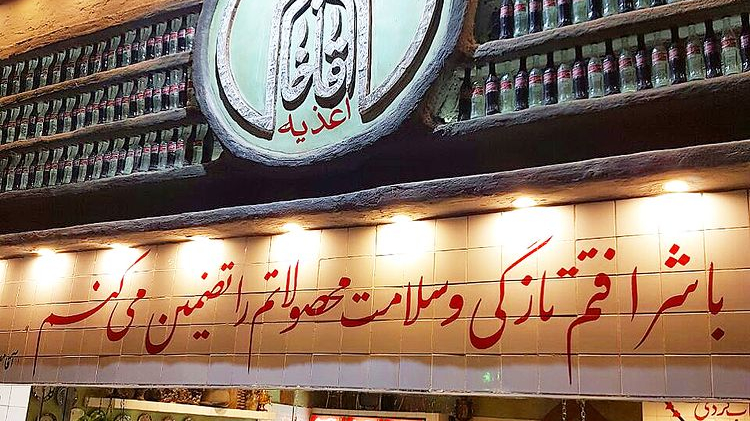 اغذیه
با شرافتم تازگی و سلامت محصولاتم را تضمین می کنم